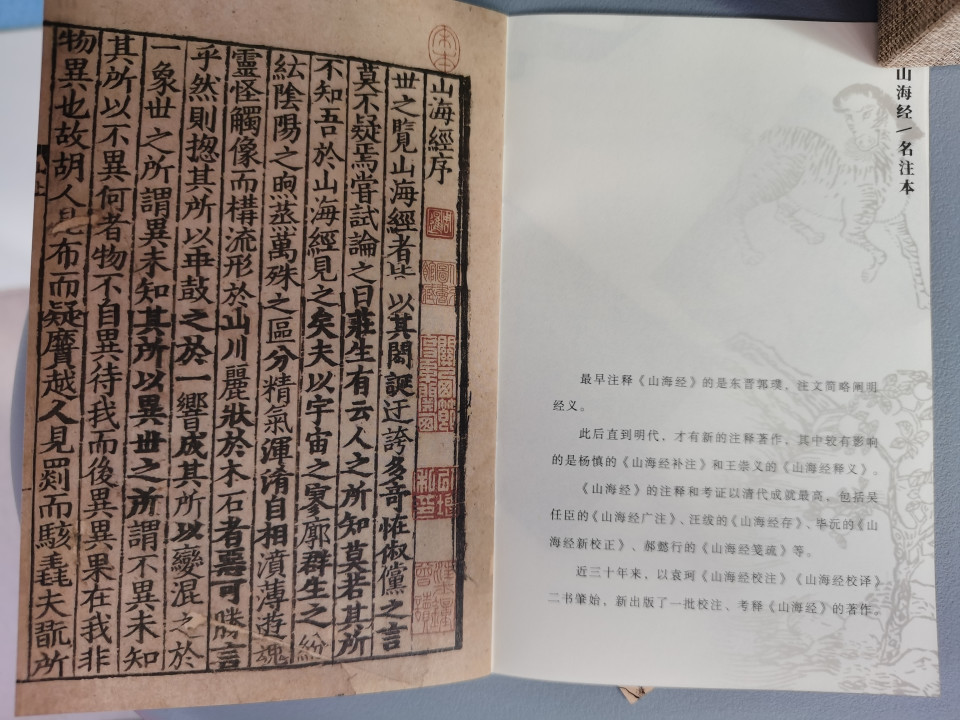 山海經序
世之覽山海經者皆以其閎誕迂誇多奇怪俶儻之言
莫不疑焉嘗試論之曰莊生有云人之所知莫若其所
不知吾於山海經見之矣夫以宇宙之寥廓群生之紛
紜陰陽之煦蒸萬殊之區分精氣渾淆自相濆薄遊魂
靈怪觸像而構流形於山川麗狀於木石者惡可勝言
乎然則揔其所以乖鼓之於一響成其所以變混之於
一象世之所謂異未知其所以異世之所謂不異未知
其所以不異何者物不自異待我而後異異果在我非
物異也故胡人見布而疑黂越人見罽而駭毳夫翫所
山海经/名注本
最早注释《山海经》的是东晋郭璞，注文简略阐明
经义。
此后直到明代，才有新的注释著作，其中较有影响
的是杨慎的《山海经补注》和王崇义的《山海经释义》
《山海经》的注释和考证以清代成就最高，包括吴
任臣的《山海经广注》、汪绂的《山海经存》、毕沅的《山
海经新校正》、郝懿行的《山海经笺疏》等。
近三十年来，以袁珂《山海经校注》《山海经校译》
二书肇始，新出版了一批校注、考释《山海经》的著作。